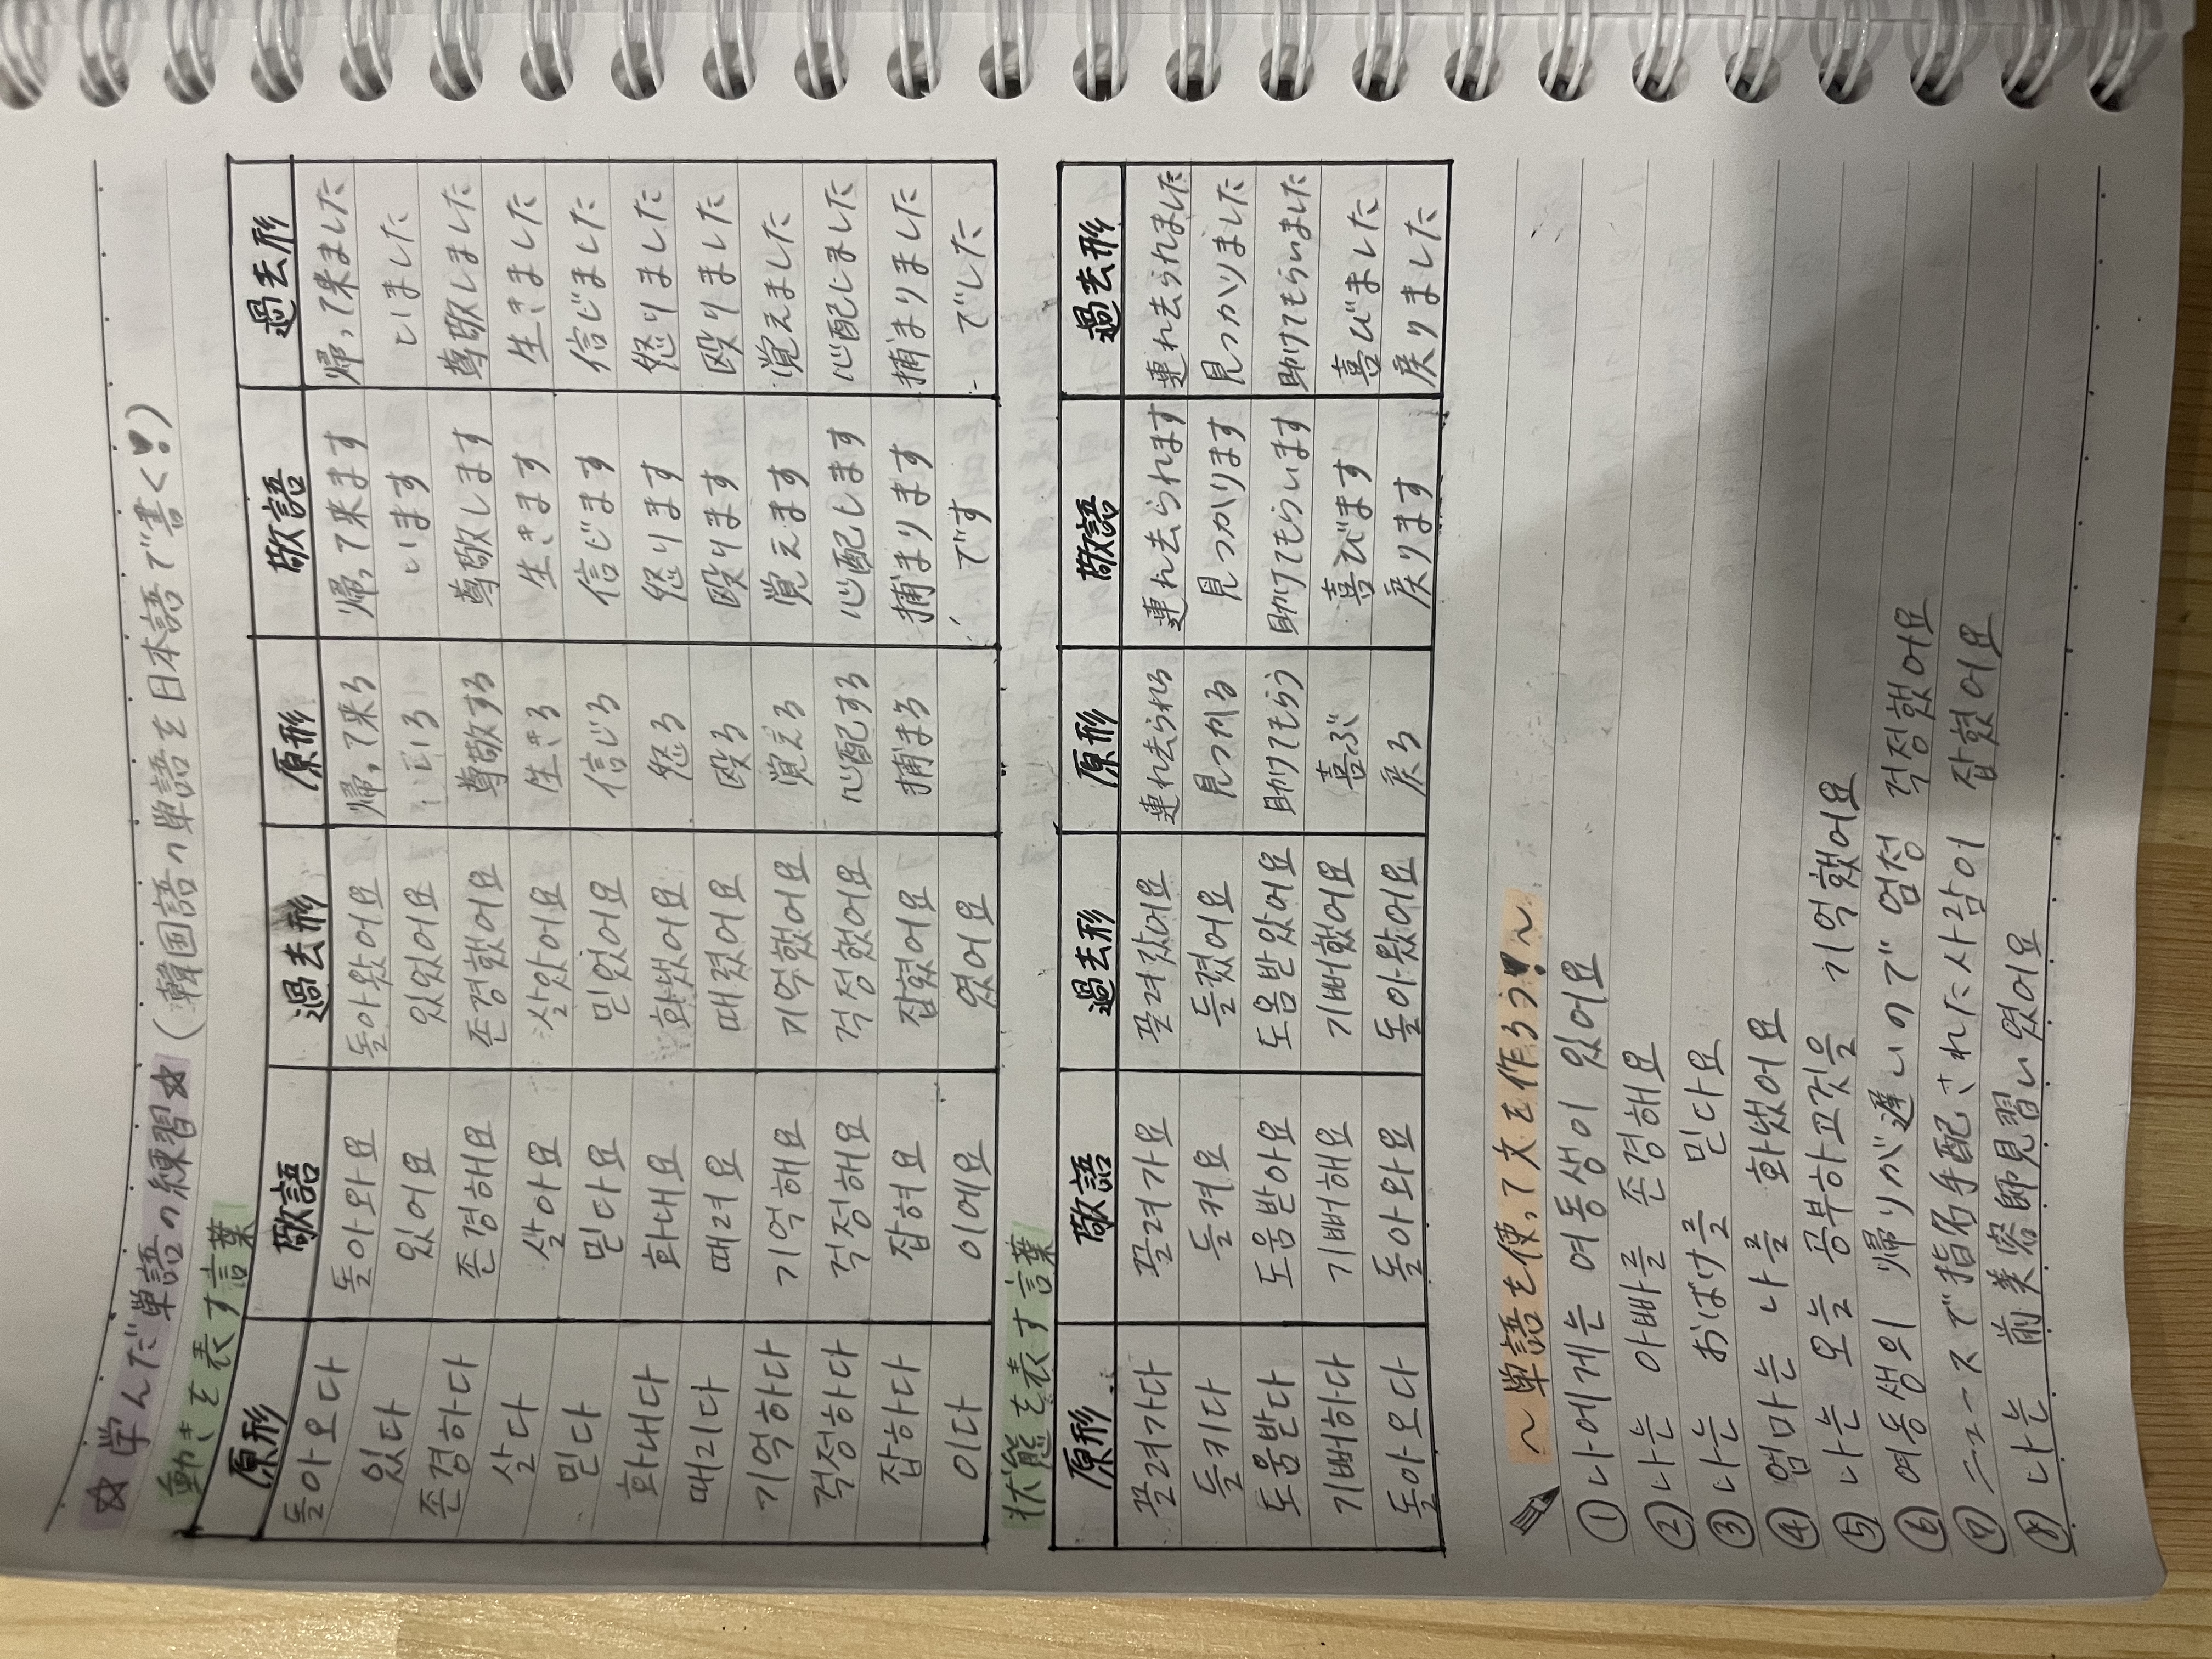 ☆学んだ単語の練習☆(韓国語の単語を日本語で書く♥!)
動きを表す言葉
原形 敬語 過去形 原形 敬語 過去形
돌아오다 돌아와요 돌아왔어요 帰って来る 帰って来ます 帰って来ました
있다 있어요 있었어요 いる います いました
존경하다 존경해요 존경했어요 尊敬する 尊敬します 尊敬しました
살다 살아요 살았어요 生きる 生きます 生きました
믿다 믿다요 믿었어요 信じる 信じます 信じました
화내다 화내요 화냈어요 怒る 怒ります 怒りました
때리다 때려요 때렸어요 殴る 殴ります 殴りました
기억하다 기억해요 기억했어요 覚える 覚えます 覚えました
걱정하다 걱정해요 걱정했어요 心配する 心配します 心配しました
잡하다 잡혀요 잡혔어요 捕まる 捕まります 捕まりました
이다 이에요 였어요 です でした
状態を表す言葉
原形 敬語 過去形 原形 敬語 過去形
끌려가다 끌려가요 끌려갔어요 連れ去られる 連れ去られます 連れ去られました
들키다 들켜요 들켰어요 見つかる 見つかります 見つかりました
도움받다 도움받아요 도움받았어요 助けてもらう 助けてもらいます 助けてもらいました
기뻐하다 기뻐해요 기뻐했어요 喜ぶ 喜びます 喜びました
돌아오다 돌아와요 돌아왔어요 戻る 戻ります 戻りました
〜単語を使って文を作ろう♥!〜
① 나에게는 여동생이 있어요
② 나는 아빠를 존경해요
③ 나는 おばけを 믿다요
④ 엄마는 나를 화냈어요
⑤ 나는 오늘 공부하고것을 기억했어요
⑥ 여동생의 帰りが遅いので 엄청 걱정했어요
⑦ ニュースで指名手配された사람이 잡혔어요
⑧ 나는 前美容師見習い였어요